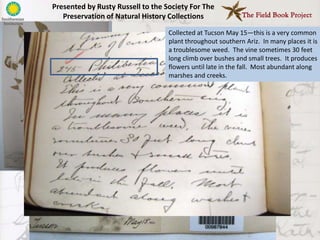 Presented by Rusty Russell to the Society For The
Preservation of Natural History Collections
Smithsonian
The Field Book Project
Collected at Tucson May 15—this is a very common
plant throughout southern Ariz.  In many places it is
a troublesome weed.  The vine sometimes 30 feet
long climb over bushes and small trees.  It produces
flowers until late in the fall.  Most abundant along
marshes and creeks.
Collected at Tucson
This is a very common plant
throughout Southern
In many places it is
a troublesome weed. The vines
sometimes 30 feet long climb
over bushes & small trees.
It produces flowers until
late in the fall. Most
abundant along
creeks.
May 15
00987944